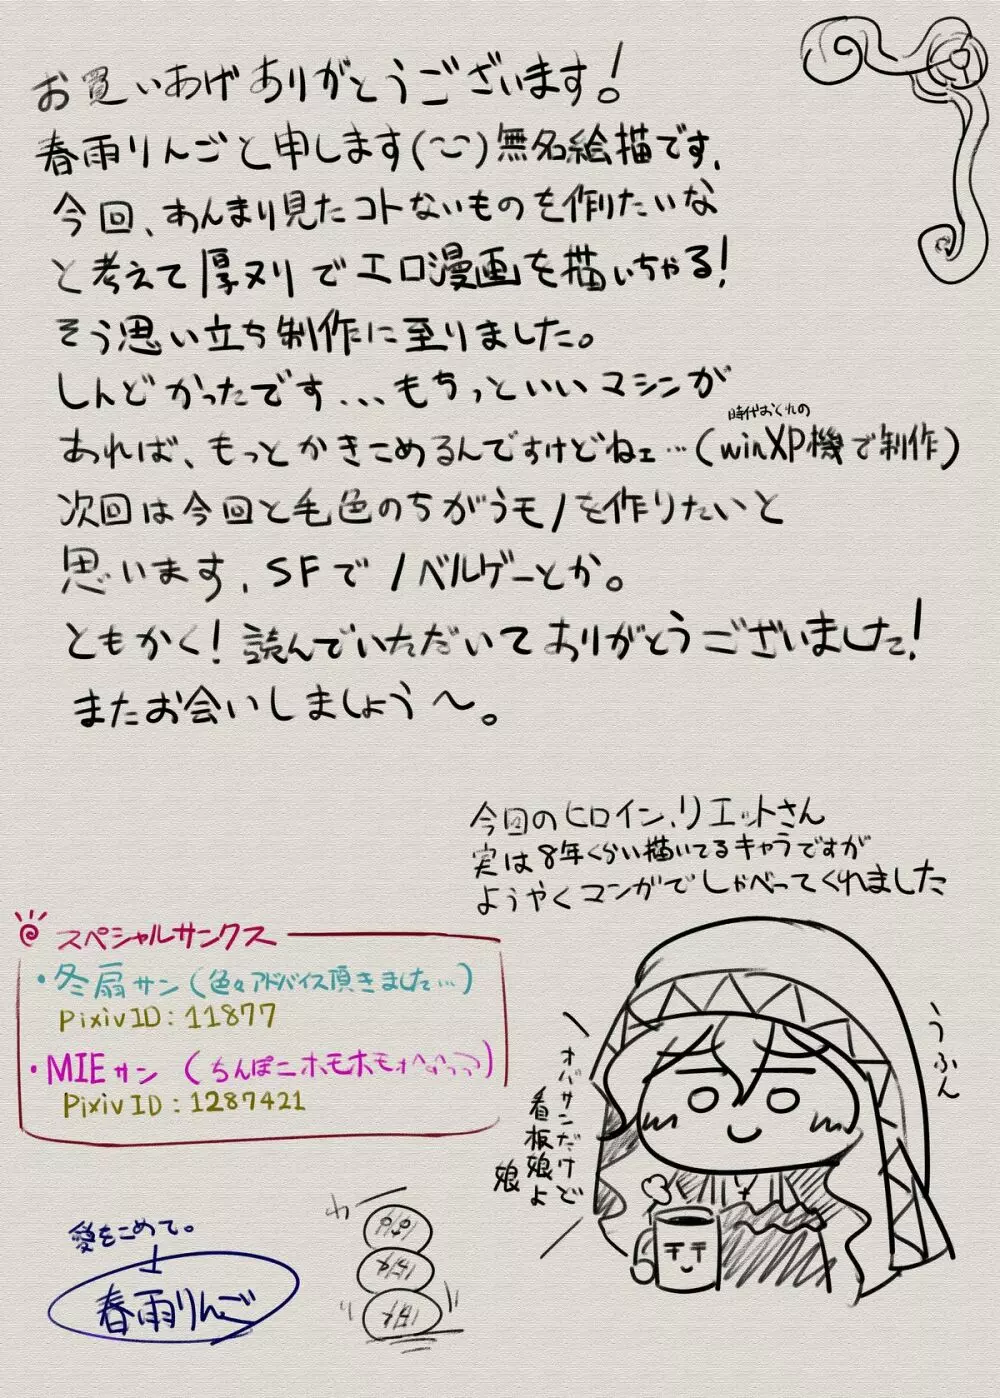 お買いあげありがとうございます!
春雨りんごと申します(~ー~)無名絵描です、
今回、あんまり見たコトないものを作りたいな
と考えて厚ヌリでエロ漫画を描いちゃる!
そう思い立ち制作に至りました。
しんどかったです...もちっといいマシンが
時代おくれの
あれば、もっとかきこめるんですけどねェ…(winXP機で制作)
次回は今回と毛色のちがうモノを作りたいと
思います、SFでノベルゲーとか。
ともかく!読んでいただいてありがとうございました!
またお会いしましょう〜。
今回のヒロイン、リエットさん
実は8年くらい描いてるキャラですが
ようやくマンガでしゃべってくれました
スペシャルサンクス
・冬扇サン(色々アドバイス頂きました…)
Pixiv ID:11877
・MIEサン(ちんぽこホモホモォ
Pixiv ID:1287421
うふん
オバサンだけど
看板娘よ
娘
愛をこめて。
春雨りんご
わー